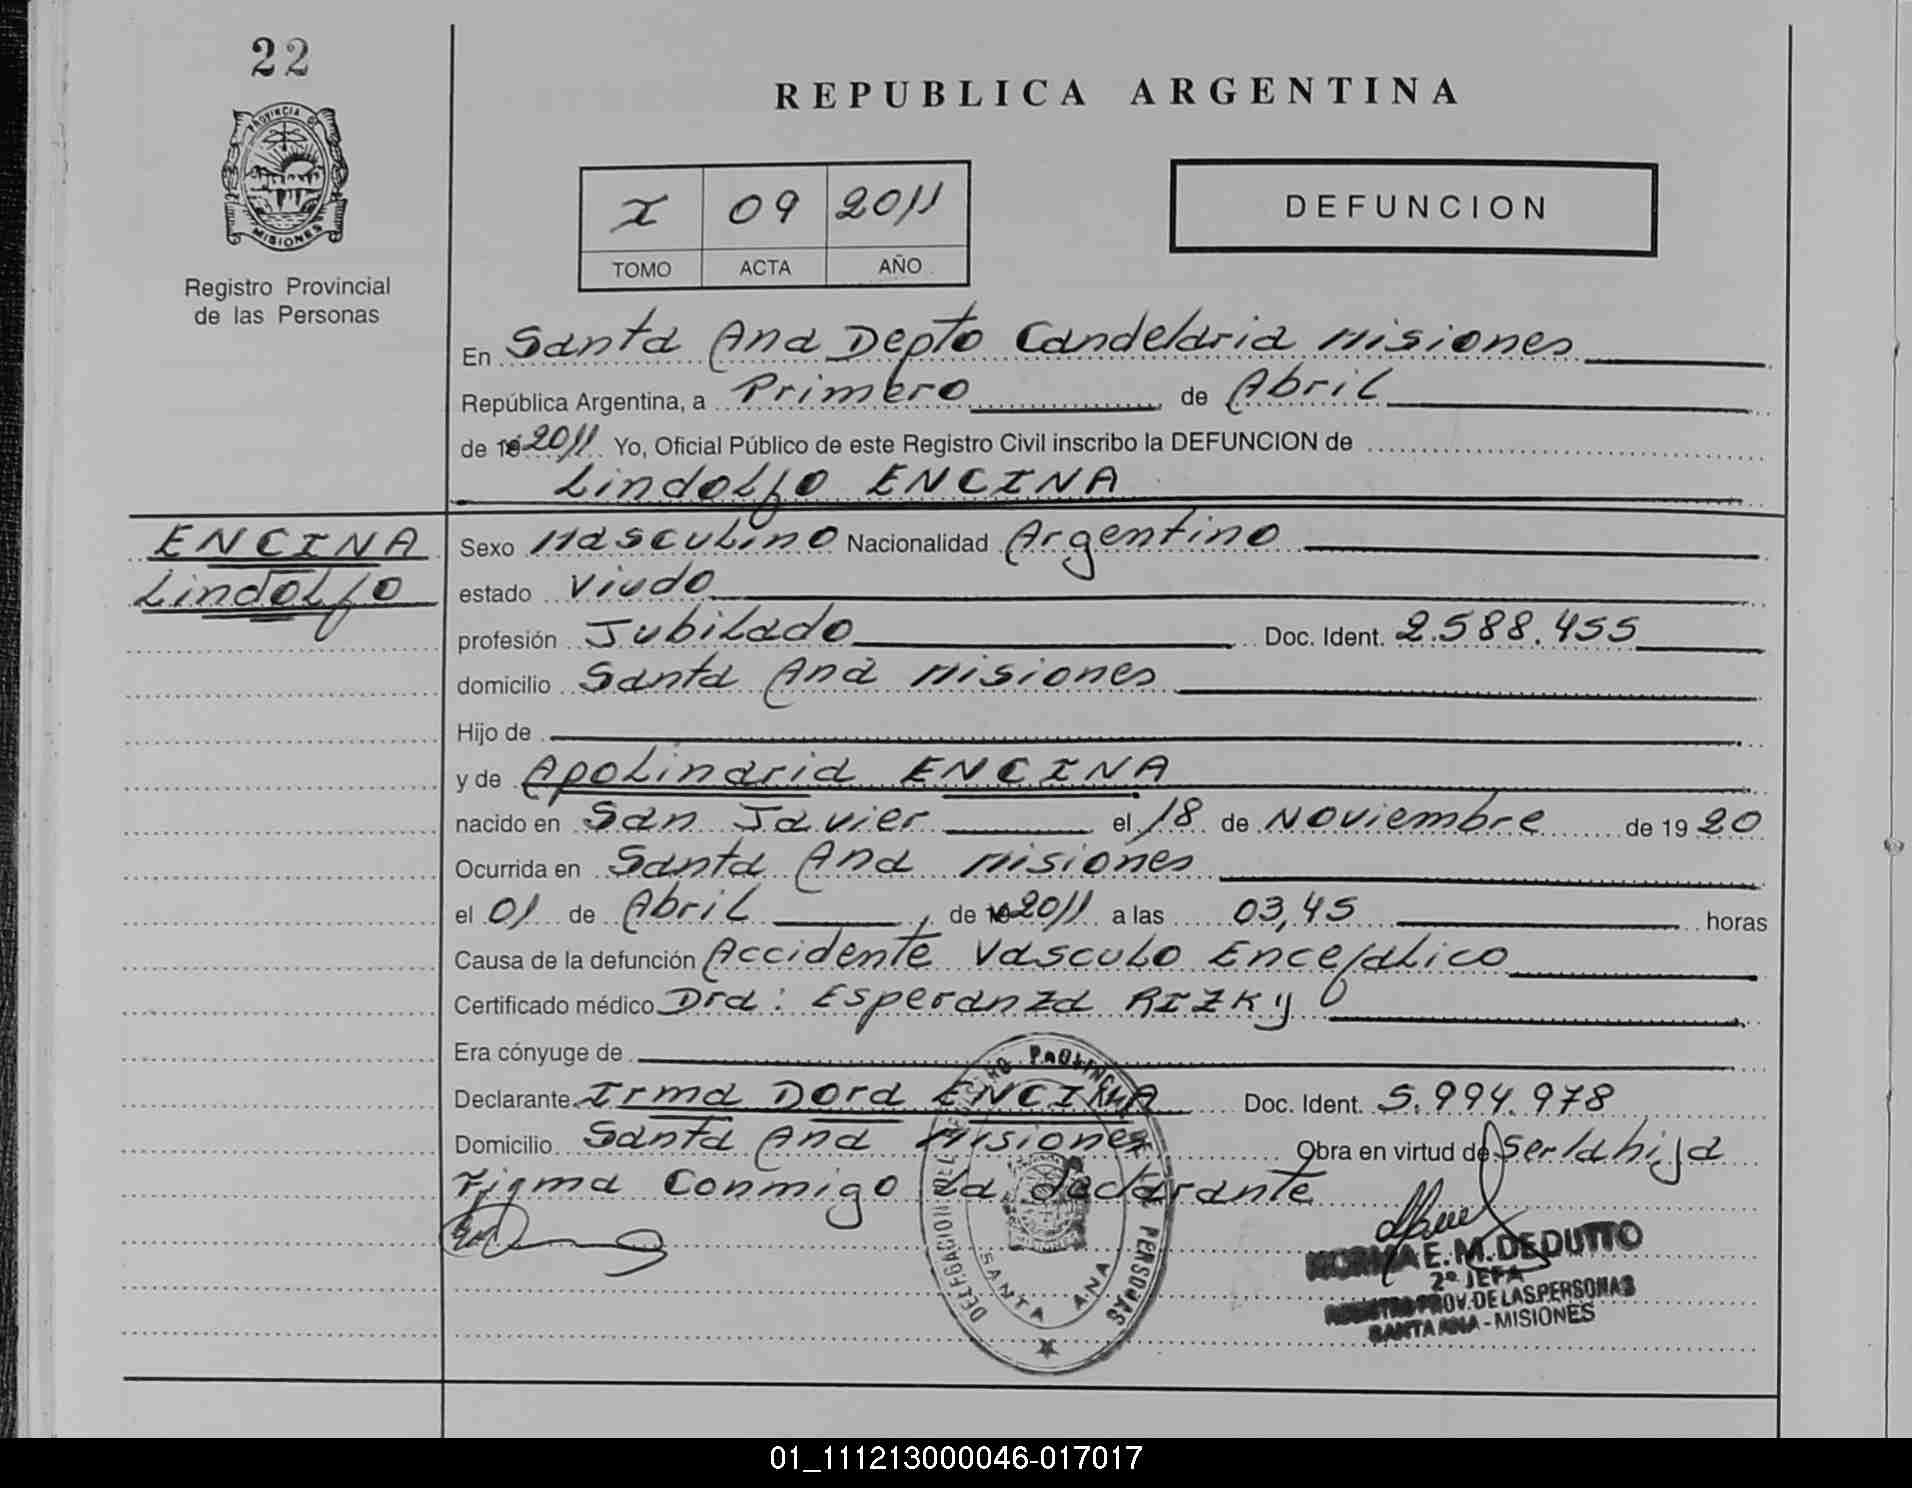 22
PROVINCIA DE
MISIONES
Registro Provincial
de las Personas
REPUBLICA ARGENTINA
I 09 2011
TOMO ACTA AÑO
DEFUNCION
En Santa Ana Depto Candelaria Misiones
República Argentina, a Primero de Abril
de 19 2011 Yo, Oficial Público de este Registro Civil inscribo la DEFUNCION de
Lindolfo ENCINA
ENCINA
Lindolfo
Sexo Masculino Nacionalidad Argentino
estado Viudo
profesión Jubilado Doc. Ident. 2.588.455
domicilio Santa Ana Misiones
Hijo de
y de Apolinaria ENCINA
nacido en San Javier el 18 de Noviembre de 1920
Ocurrida en Santa Ana Misiones
el 01 de Abril, de 19 2011 a las 03,45 horas
Causa de la defunción Accidente Vasculo Encefalico
Certificado médico Dra: Esperanza RIZKY
Era cónyuge de
Declarante Irma Dora ENCINA Doc. Ident. 5.994.978
Domicilio Santa Ana Misiones Obra en virtud de Ser la hija
Figma Conmigo la declarante
DELEGACION DEL REGISTRO PROVINCIAL DE LAS PERSONAS
SANTA ANA
NORMA E. M. DEDUTTO
2º JEFA
REGISTRO PROV. DE LAS PERSONAS
SANTA ANA - MISIONES
01_111213000046-017017